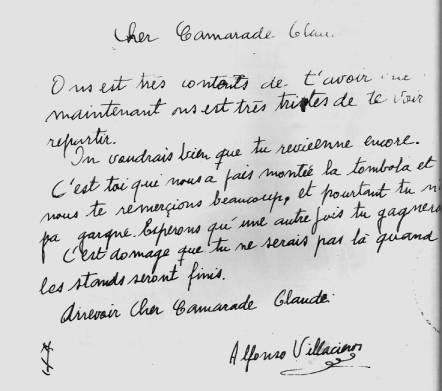 Cher Camarade Clau
Ons est très contents de t'avoir
maintenant ons est très tristes de te voir
repartir.
On voudrais bien que tu revienne encore.
C'est toi qui nous a fais montée la tombola et
nous te remerçions beaucoup, et pourtant tu
pa gargne. Esperons qu'une autre fois tu gagnera
C'est domage que tu ne serais pas là quand
les stands seront finis.
Arrevoir Cher Camarade Claude.
Alfonso Villacieros